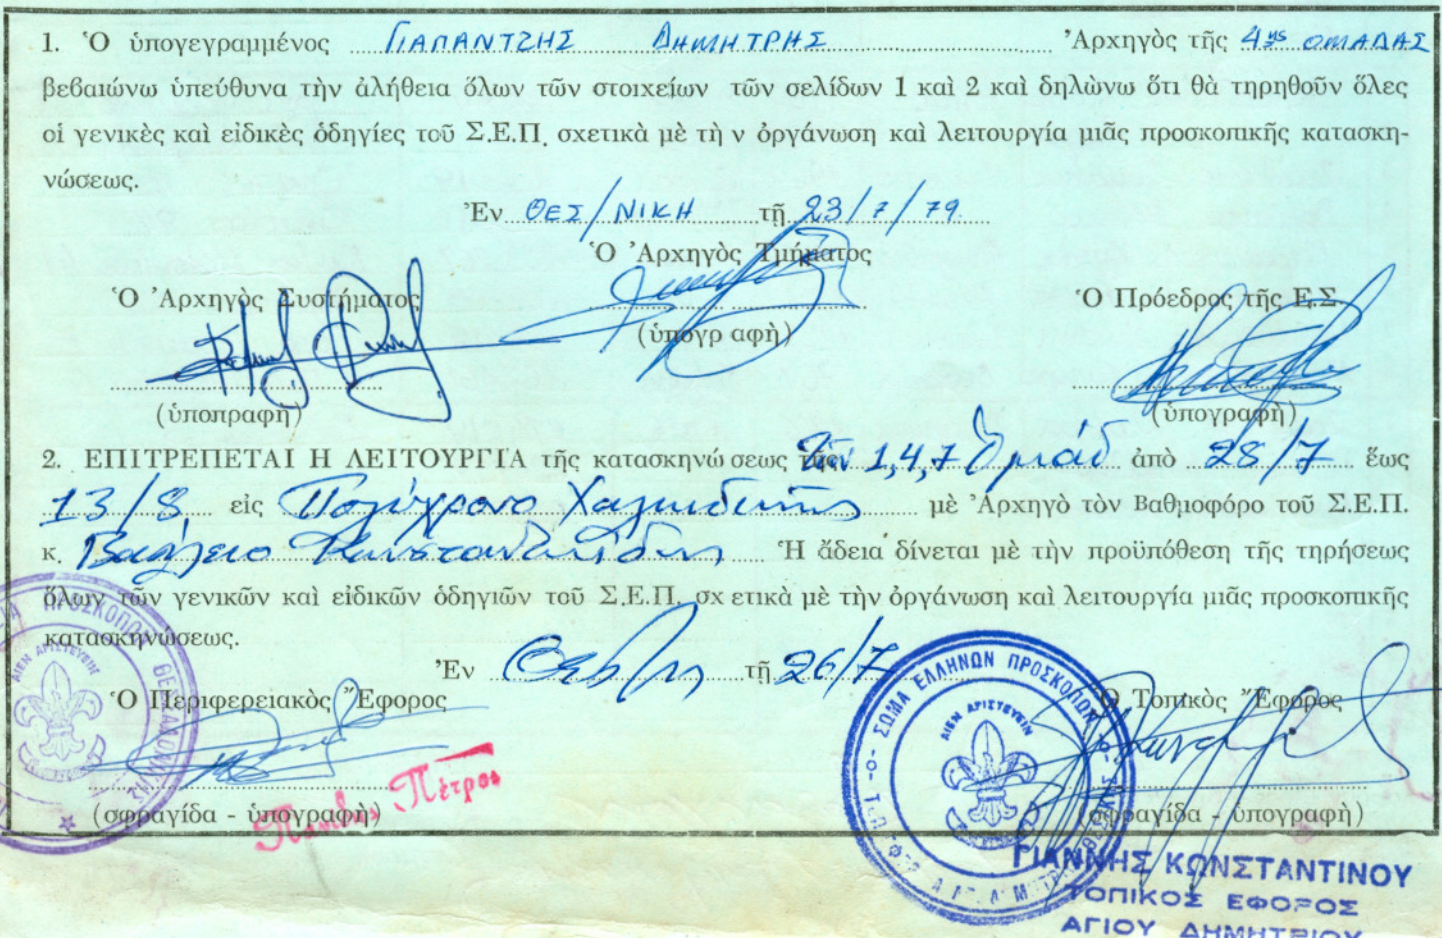 1. Ὁ ὑπογεγραμμένος ΓΙΑΠΑΝΤΖΗΣ ΔΗΜΗΤΡΗΣ Ἀρχηγὸς τῆς 4ης ΟΜΑΔΑΣ
βεβαιώνω ὑπεύθυνα τὴν ἀλήθεια ὅλων τῶν στοιχείων τῶν σελίδων 1 καὶ 2 καὶ δηλώνω ὅτι θὰ τηρηθοῦν ὅλες
οἱ γενικὲς καὶ εἰδικὲς ὁδηγίες τοῦ Σ.Ε.Π. σχετικὰ μὲ τὴ ν ὀργάνωση καὶ λειτουργία μιᾶς προσκοπικῆς κατασκη-
νώσεως.
Ἐν ΘΕΣ/ΝΙΚΗ τῇ 23/7/79
Ὁ Ἀρχηγὸς Τμήματος
Ὁ Ἀρχηγὸς Συστήματος Ὁ Πρόεδρος τῆς Ε.Σ.
(ὑπογρ αφὴ)
(ὑποπραφὴ) (ὑπογραφὴ)
2. ΕΠΙΤΡΕΠΕΤΑΙ Η ΛΕΙΤΟΥΡΓΙΑ τῆς κατασκηνώ σεως τῶν 1,4,7 Ὁμάδ ἀπὸ 28/7 ἕως
13/8 εἰς Πολύχρονο Χαλκιδικῆς μὲ Ἀρχηγὸ τὸν Βαθμοφόρο τοῦ Σ.Ε.Π.
κ. Βασίλειο Κωνσταντινίδην Ἡ ἄδεια δίνεται μὲ τὴν προϋπόθεση τῆς τηρήσεως
ὅλων τῶν γενικῶν καὶ εἰδικῶν ὁδηγιῶν τοῦ Σ.Ε.Π. σχ ετικὰ μὲ τὴν ὀργάνωση καὶ λειτουργία μιᾶς προσκοπικῆς
κατασκηνώσεως.
Ἐν Θεσ/κη τῇ 26/7
Ὁ Περιφερειακὸς Ἔφορος Ὁ Τοπικὸς Ἔφορος
Πέτρος
(σφραγίδα - ὑπογραφὴ) (σφραγίδα - ὑπογραφὴ)
ΣΩΜΑ ΕΛΛΗΝΩΝ ΠΡΟΣΚΟΠΩΝ
ΑΙΕΝ ΑΡΙΣΤΕΥΕΙΝ
ΑΙΕΝ ΑΡΙΣΤΕΥΕΙΝ
ΓΙΑΝΝΗΣ ΚΩΝΣΤΑΝΤΙΝΟΥ
ΤΟΠΙΚΟΣ ΕΦΟΡΟΣ
ΑΓΙΟΥ ΔΗΜΗΤΡΙΟΥ